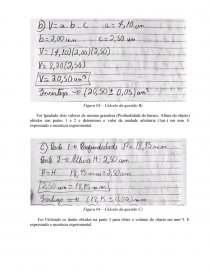 b) V = a · b · c a = 4,10 cm
b = 2,00 cm c = 2,50 cm
V = (4,10)(2,00)(2,50)
V = 8,20(2,50)
V = 20,50 cm³
Incerteza → (20,50 ± 0,05) cm³
Figura 03 – Cálculo da questão B)
Foi Igualado dois valores de mesma grandeza (Profundidade do buraco, Altura do objeto)
obtidos nas partes 1 e 2 e determinou o valor de unidade arbitrária (1ua.) em mm. E
expressando a incerteza experimental.
c) Parte 1 → Profundidade P = 19,15 ua
Parte 2 → Altura H = 2,50 cm
P = H 19,15 = 2,50 cm
2,50 cm = 19,15
Figura 04 – Cálculo da questão C)
Foi Utilizado os dados obtidos na parte 3 para obter o volume do objeto em mm^3. E
expressando a incerteza experimental.